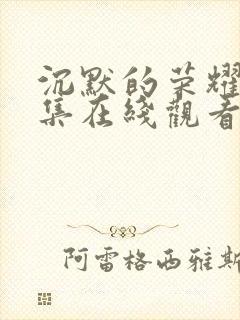 沉默的荣耀
集在线觀看
阿雷格西雅斯